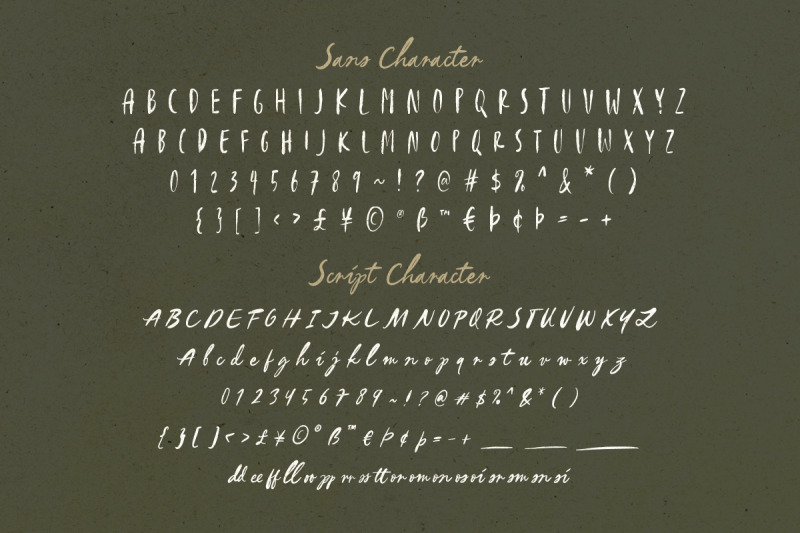 Sans Character
A B C D E F G H I J K L M N O P Q R S T U V W X Y Z
A B C D E F G H I J K L M N O P Q R S T U V W X Y Z
0 1 2 3 4 5 6 7 8 9 ~ ! ? @ # $ % ^ & * ( )
{ } [ ] < > £ ¥ © ® ß ™ € Þ ¢ þ = - +
Script Character
A B C D E F G H I J K L M N O P Q R S T U V W X Y Z
A b c d e f g h i j k l m n o p q r s t u v w x y z
0 1 2 3 4 5 6 7 8 9 ~ ! ? @ # $ % ^ & * ( )
{ } [ ] < > £ ¥ © ® ß ™ € Þ ¢ þ = - +
dd ee ff ll oo pp rr ss tt or om on os oi sr sm sn si